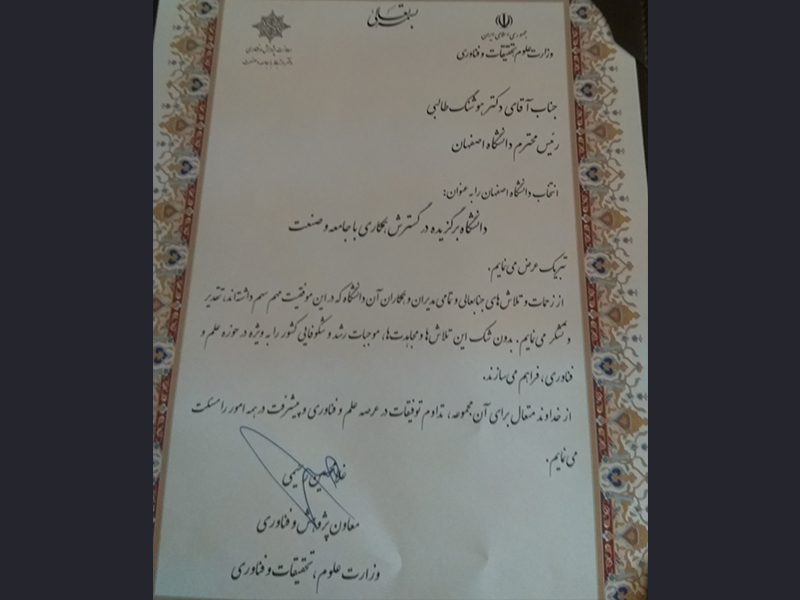 بسمه تعالی
جمهوری اسلامی ایران
وزارت علوم، تحقیقات و فناوری
معاونت پژوهش و فناوری
جناب آقای دکتر هوشنگ طالبی
رئیس محترم دانشگاه اصفهان
انتخاب دانشگاه اصفهان را به عنوان:
دانشگاه برگزیده در گسترش همکاری با جامعه و صنعت
تبریک عرض می نمایم.
از زحمات و تلاش های جنابعالی و تمامی مدیران و همکاران آن دانشگاه که در این موفقیت مهم سهم داشته اند، تقدیر
و تشکر می نمایم. بدون شک این تلاش ها و مجاهدت ها، موجبات رشد و شکوفایی کشور را به ویژه در حوزه علم و
فناوری، فراهم می سازند.
از خداوند متعال برای آن مجموعه، تداوم توفیقات در عرصه علم و فناوری و پیشرفت در همه امور را مسئلت
می نمایم.
غلامحسین رحیمی
معاون پژوهش و فناوری
وزارت علوم، تحقیقات و فناوری